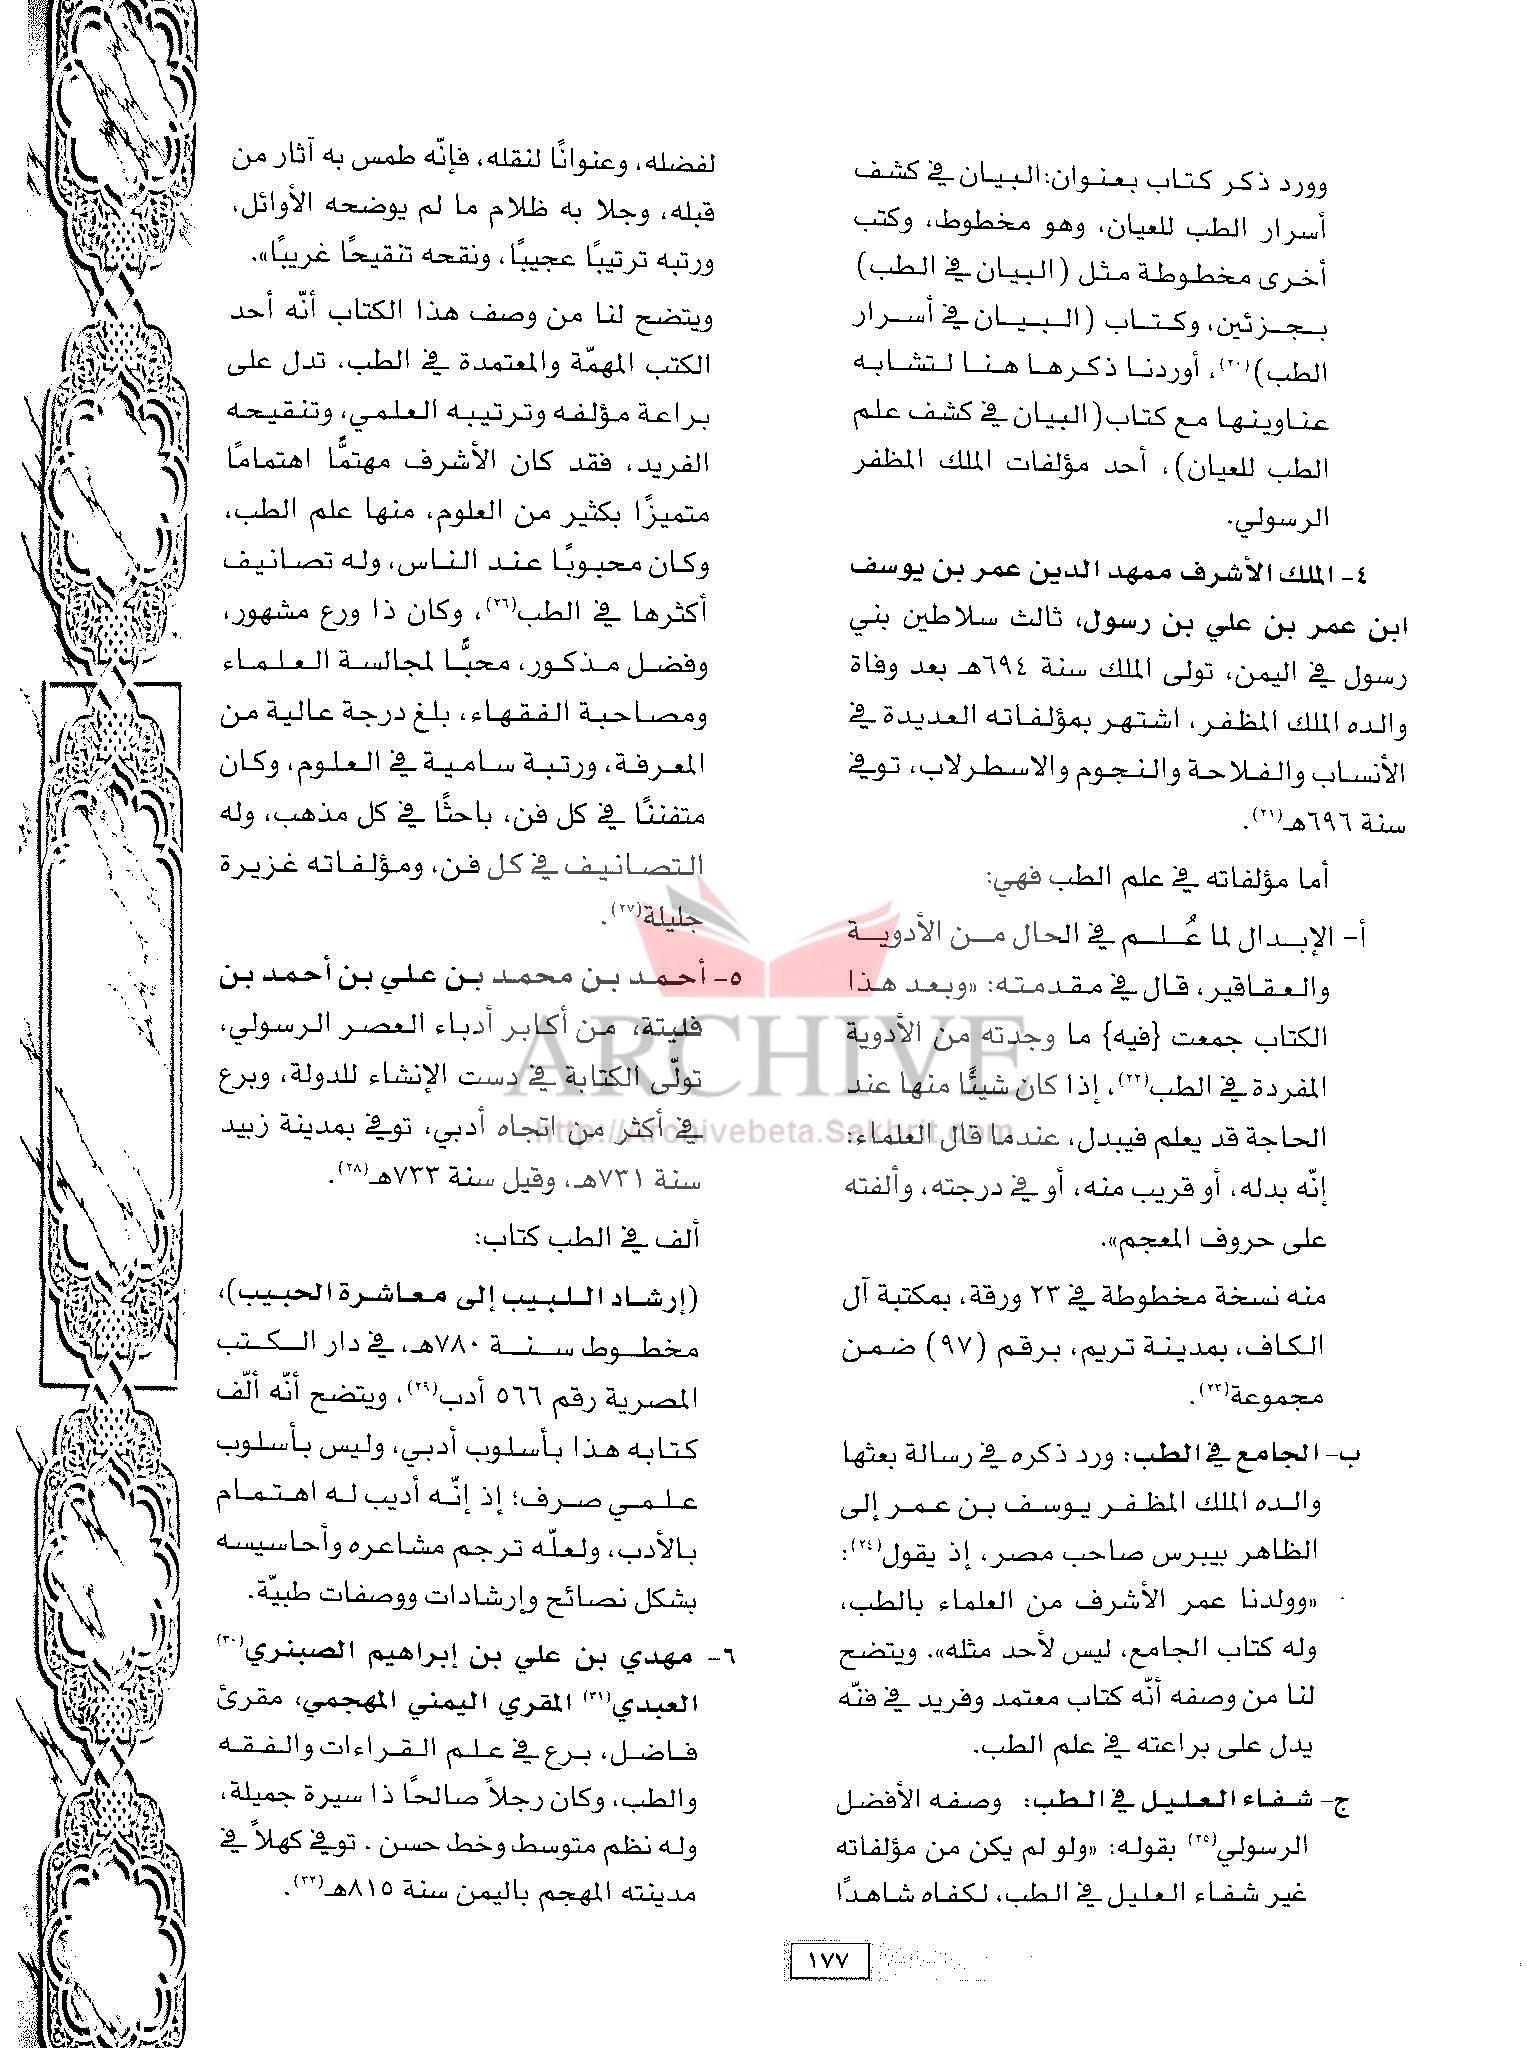 وورد ذكر كتاب بعنوان: البيان في كشف
أسرار الطب للعيان، وهو مخطوط، وكتب
أخرى مخطوطة مثل (البيان في الطب)
بجزئين، وكتاب (البيان في أسرار
الطب)(٢٠)، أوردنا ذكرها هنا لتشابه
عناوينها مع كتاب(البيان في كشف علم
الطب للعيان)، أحد مؤلفات الملك المظفر
الرسولي.
٤- الملك الأشرف ممهد الدين عمر بن يوسف
ابن عمر بن علي بن رسول، ثالث سلاطين بني
رسول في اليمن، تولى الملك سنة ٦٩٤هـ بعد وفاة
والده الملك المظفر، اشتهر بمؤلفاته العديدة في
الأنساب والفلاحة والنجوم والاسطرلاب، توفي
سنة ٦٩٦هـ(٢١).
أما مؤلفاته في علم الطب فهي:
أ- الإبدال لما عُلم في الحال من الأدوية
والعقاقير، قال في مقدمته: «وبعد هذا
الكتاب جمعت {فيه} ما وجدته من الأدوية
المفردة في الطب(٢٢)، إذا كان شيئًا منها عند
الحاجة قد يعلم فيبدل، عندما قال العلماء:
إنّه بدله، أو قريب منه، أو في درجته، وألفته
على حروف المعجم».
منه نسخة مخطوطة في ٢٣ ورقة، بمكتبة آل
الكاف، بمدينة تريم، برقم (٩٧) ضمن
مجموعة(٢٣).
ب- الجامع في الطب: ورد ذكره في رسالة بعثها
والده الملك المظفر يوسف بن عمر إلى
الظاهر بيبرس صاحب مصر، إذ يقول(٢٤):
«وولدنا عمر الأشرف من العلماء بالطب،
وله كتاب الجامع، ليس لأحد مثله». ويتضح
لنا من وصفه أنّه كتاب معتمد وفريد في فنّه
يدل على براعته في علم الطب.
ج- شفاء العليل في الطب: وصفه الأفضل
الرسولي(٢٥) بقوله: «ولو لم يكن من مؤلفاته
غير شفاء العليل في الطب، لكفاه شاهدًا
لفضله، وعنوانًا لنقله، فإنّه طمس به آثار من
قبله، وجلا به ظلام ما لم يوضحه الأوائل،
ورتبه ترتيبًا عجيبًا، ونقحه تنقيحًا غريبًا».
ويتضح لنا من وصف هذا الكتاب أنّه أحد
الكتب المهمّة والمعتمدة في الطب، تدل على
براعة مؤلفه وترتيبه العلمي، وتنقيحه
الفريد، فقد كان الأشرف مهتمًّا اهتمامًا
متميزًا بكثير من العلوم، منها علم الطب،
وكان محبوبًا عند الناس، وله تصانيف
أكثرها في الطب(٢٦)، وكان ذا ورع مشهور،
وفضل مذكور، محبًّا لمجالسة العلماء
ومصاحبة الفقهاء، بلغ درجة عالية من
المعرفة، ورتبة سامية في العلوم، وكان
متفننًا في كل فن، باحثًا في كل مذهب، وله
التصانيف في كل فن، ومؤلفاته غزيرة
جليلة(٢٧).
٥- أحمد بن محمد بن علي بن أحمد بن
فليتة، من أكابر أدباء العصر الرسولي،
تولّى الكتابة في دست الإنشاء للدولة، وبرع
في أكثر من اتجاه أدبي، توفي بمدينة زبيد
سنة ٧٣١هـ، وقيل سنة ٧٣٣هـ(٢٨).
ألف في الطب كتاب:
(إرشاد اللبيب إلى معاشرة الحبيب)،
مخطوط سنة ٧٨٠هـ، في دار الكتب
المصرية رقم ٥٦٦ أدب(٢٩)، ويتضح أنّه ألّف
كتابه هذا بأسلوب أدبي، وليس بأسلوب
علمي صرف؛ إذ إنّه أديب له اهتمام
بالأدب، ولعلّه ترجم مشاعره وأحاسيسه
بشكل نصائح وإرشادات ووصفات طبيّة.
٦- مهدي بن علي بن إبراهيم الصبنري(٣٠)
العبدي(٣١) المقري اليمني المهجمي، مقرئ
فاضل، برع في علم القراءات والفقه
والطب، وكان رجلاً صالحًا ذا سيرة جميلة،
وله نظم متوسط وخط حسن. توفي كهلاً في
مدينته المهجم باليمن سنة ٨١٥هـ(٣٢).
١٧٧
ARCHIVE
http://Archivebeta.Sakhrit.com